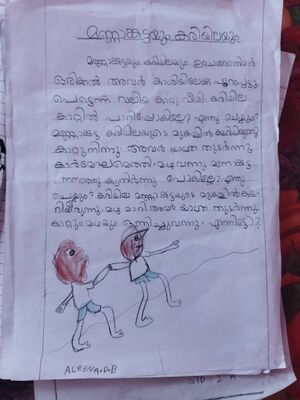 മണ്ണാങ്കട്ടയും കരിയിലയും
മണ്ണാങ്കട്ടയും കരിയിലയും ഉറ്റചങ്ങാതിമാർ
ഒരിക്കൽ അവർ കാശിയിലേക്കു പുറപ്പെട്ടു
പെട്ടെന്ന് വലിയ കാറ്റു വീശി കരിയില
കാറ്റിൽ പാറിപ്പോകില്ലേ? എന്തു ചെയ്യും?
മണ്ണാങ്കട്ട കരിയിലയുടെ മുകളിൽ കയറിയിരുന്നു
കാറ്റുനിന്നു. അവർ യാത്ര തുടർന്നു.
കാർമേഘമെത്തി. മഴവന്നു മണ്ണാങ്കട്ട
നനഞ്ഞു കുതിർന്നു പോകില്ലേ? എന്തു
ചെയ്യും? കരിയില മണ്ണാങ്കട്ടയുടെ മുകളിൽ കയ
റിയിരുന്നു. മഴ മാറി അവർ യാത്ര തുടർന്നു.
കാറ്റും മഴയും ഒന്നിച്ചുവന്നു. എന്നിട്ടോ?
ALEENA.P.B
STD: I A